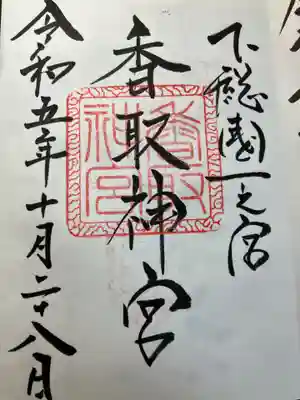 下総國一之宮
香取神宮
香取
神宮
令和五年十月二十八日